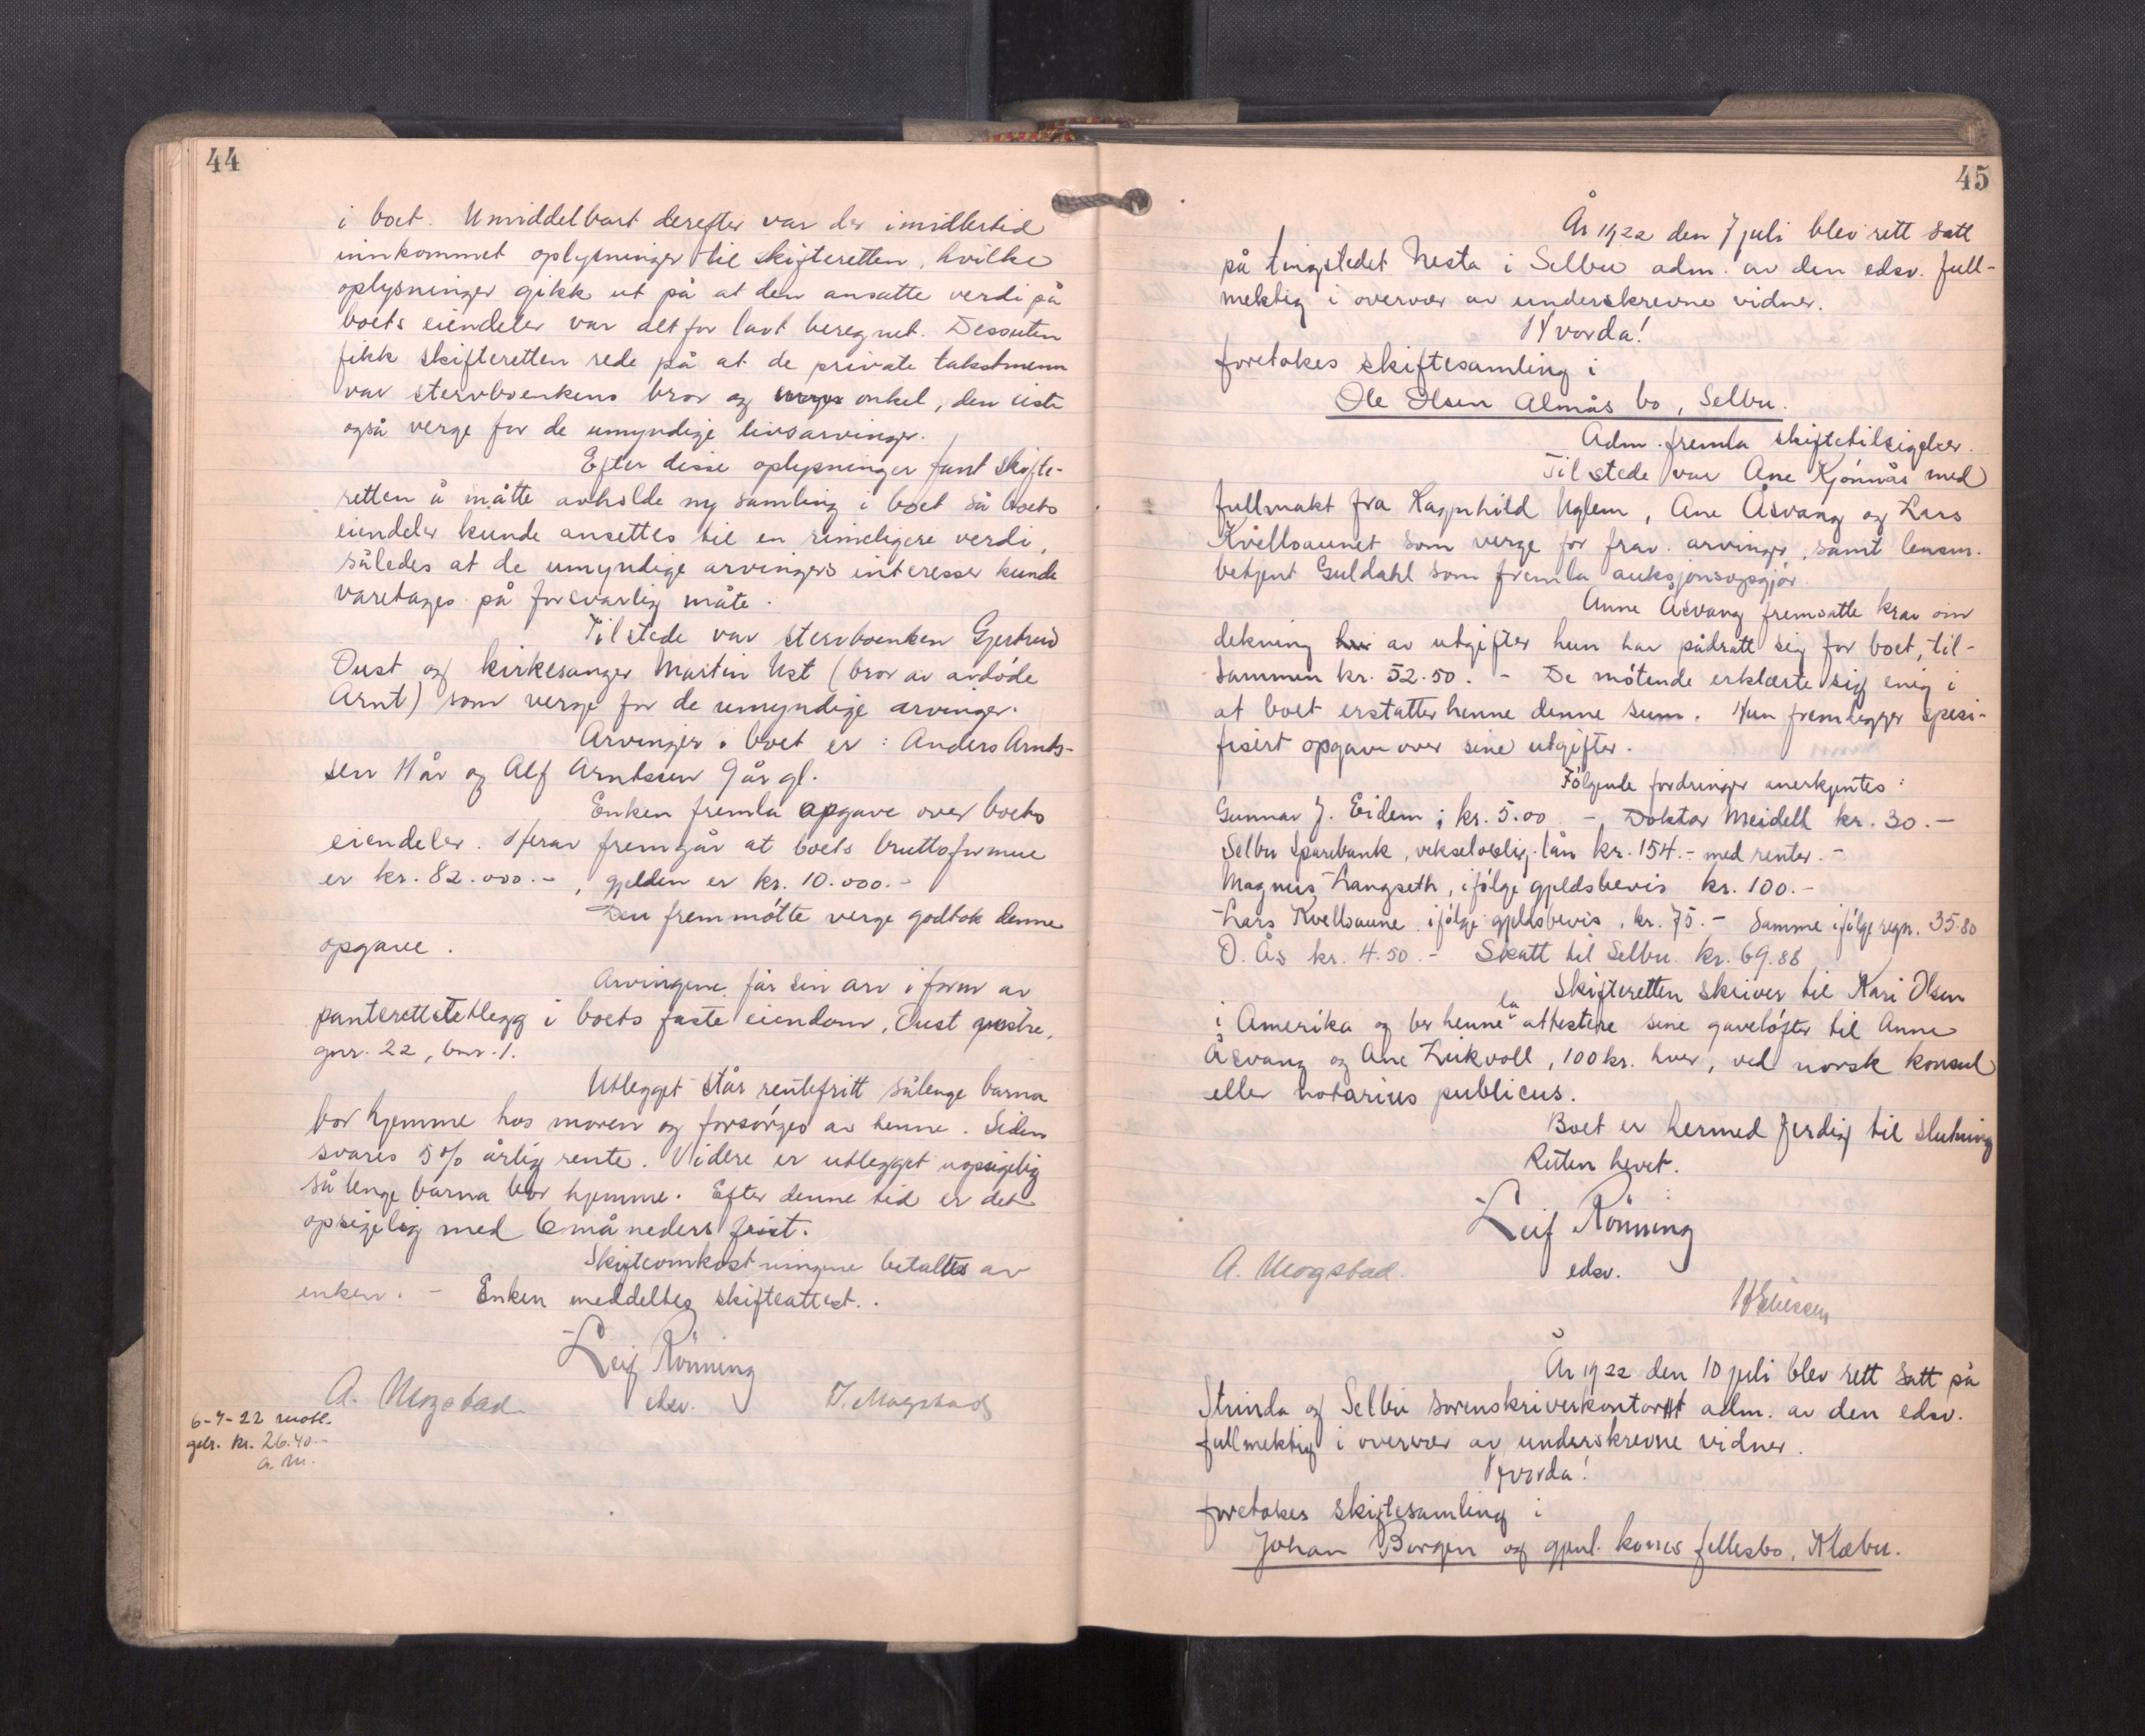 44
i boet. Umiddelbart derefter var der imidlertid
innkommet oplysninger til skifteretten, hvilke
oplysninger gikk ut på at den ansatte verdi på
boets eiendeler var alt for lavt beregnet. Dessuten
fikk skifteretten rede på at de private takstmenn
var stervboenkens bror og onkel, den siste
også verge for de umyndige livsarvinger.
Efter disse oplysninger fant skifte-
retten å måtte avholde ny samling i boet så boets
eiendeler kunde ansettes til en rimeligere verdi,
således at de umyndige arvingers interesser kunde
varetages på forsvarlig måte.
Tilstede var stervboenken Gjertrud
Oust og kirkesanger Martin Ust (bror av avdøde
Arnt) som verge for de umyndige arvinger.
Arvinger i boet er: Anders Arnts-
sen 11 år og Alf Arntssen 9 år gl.
Enken fremla opgave over boets
eiendeler. Herav fremgår at boets bruttoformue
er kr. 82.000.-, gjelden er kr. 10.000.-
Den fremmøtte verge godtok denne
opgave.
Arvingene får sin arv i form av
panterettsutlegg i boets faste eiendom, Oust østre,
gnr. 22, bnr. 1.
Utlegget står rentefritt sålenge barna
bor hjemme hos moren og forsørges av henne. Siden
svares 5% årlig rente. Videre er utlegget uopsigelig
så lenge barna bor hjemme. Efter denne tid er det
opsigelig med 6 måneders frist.
Skifteomkostningene betaltes av
enken. - Enken meddeltes skifteattest.
Leif Rönning
A. Mogstad edsv. J. Mogstad
6-7-22 motl.
geb. kr. 26.40.-
a. M.
45
År 1922 den 7 juli blev rett satt
på tingstedet Nesta i Selbu adm. av den edsv. full-
mektig i overvær av underskrevne vidner.
Hvorda!
foretokes skiftesamling i
Ole Olsen Almås bo, Selbu.
Adm. fremla skiftetilsigelser.
Tilstede var Ane Kjønnås med
fullmakt fra Ragnhild Uglem, Ane Åsvang og Lars
Kvellosaunet som verge for frav. arvinger, samt lensm.
betjent Guldahl som fremla auksjonsopgjør.
Anne Åsvang fremsatte krav om
dekning av utgifter hun har pådratt sig for boet, til-
sammen kr. 52.50. - De møtende erklærte sig enig i
at boet erstatter henne denne sum. Hun fremlegger spesi-
fisert opgave over sine utgifter.
Følgende fordringer anerkjentes:
Gunnar J. Eidem; kr. 5.00 -, Doktor Meidell kr. 30.-
Selbu Sparebank, vekselobligj. lån kr. 154.- med renter.-
Magnus Langseth, ifølge gjeldsbevis kr. 100.-
Lars Kvellosaune ifølge gjeldsbevis, kr. 75.- Samme ifølge regn. 35.80
O. Ås kr. 4.50.- Skatt til Selbu kr. 69.88
Skifteretten skriver til Kari Olsen
i Amerika og ber henne la attestere sine gaveløfter til Anne
Åsvang og Ane Lukvoll, 100 kr. hver, ved norsk konsul
eller notarius publicus.
Boet er hermed ferdig til slutning
Retten hevet.
Leif Rönning
A. Mogstad. edsv.
År 1922 den 10 juli blev rett satt på
Strinda og Selbu sorenskriverkontor adm. av den edsv.
fullmektig i overvær av underskrevne vidner.
Hvorda!
foretokes skiftesamling i
Johan Borgen og gjenl. kones fellesbo, Klæbu.